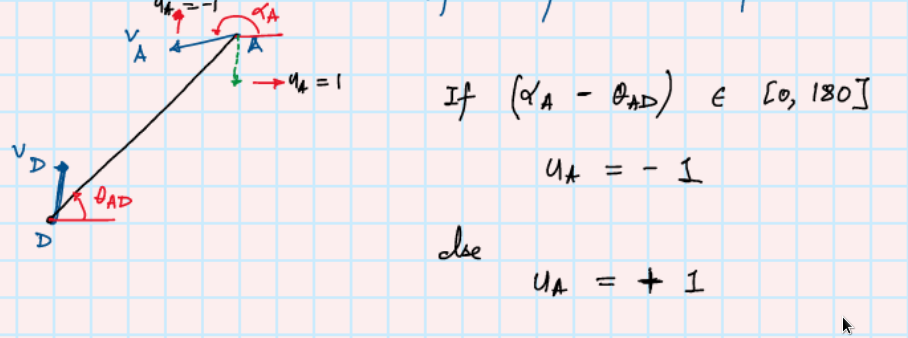 u_A = -1
α_A
V_A
A
u_A = 1
V_D
θ_AD
D
If (α_A - θ_AD) ∈ [0, 180]
u_A = - 1
else
u_A = + 1